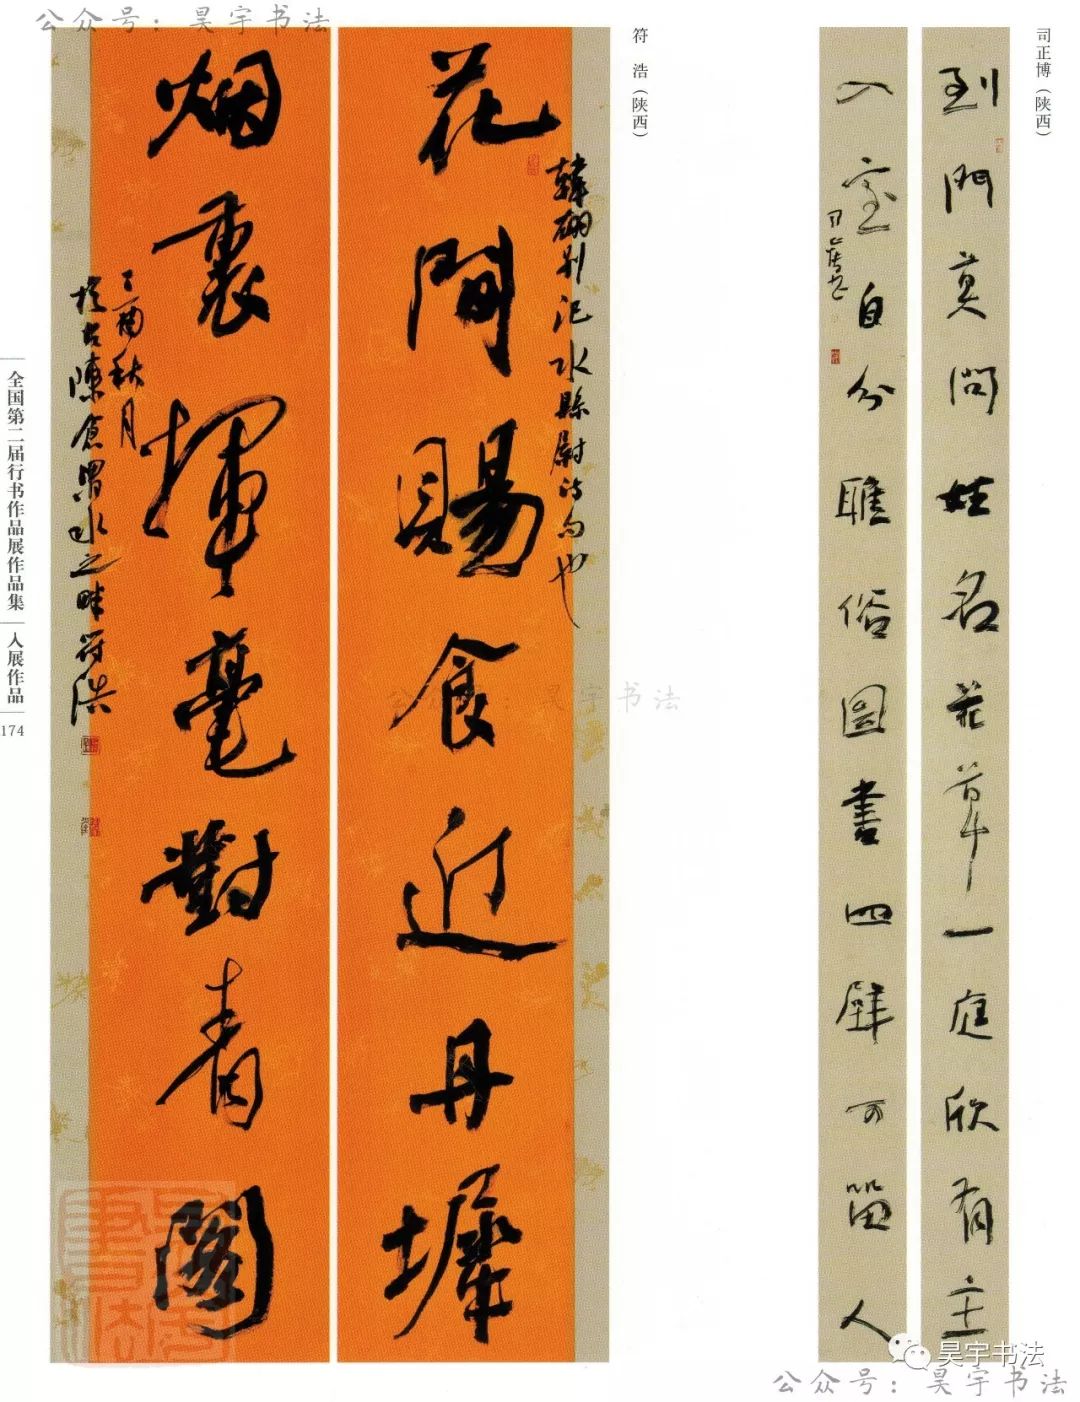 公众号：昊宇书法
司正博（陕西）
到門莫問姓名花草一庭欣有主
入室自分雕俗圖書四壁可留人
符浩（陕西）
花間賜食近丹墀
烟裏揮毫對青閣
韓翃別汜水縣尉詩句也
丁酉秋月
於古陳倉渭水之畔符浩
全国第二届行书作品展作品集
入展作品
174
公众号：昊宇书法
昊宇书法
公众号：昊宇书法